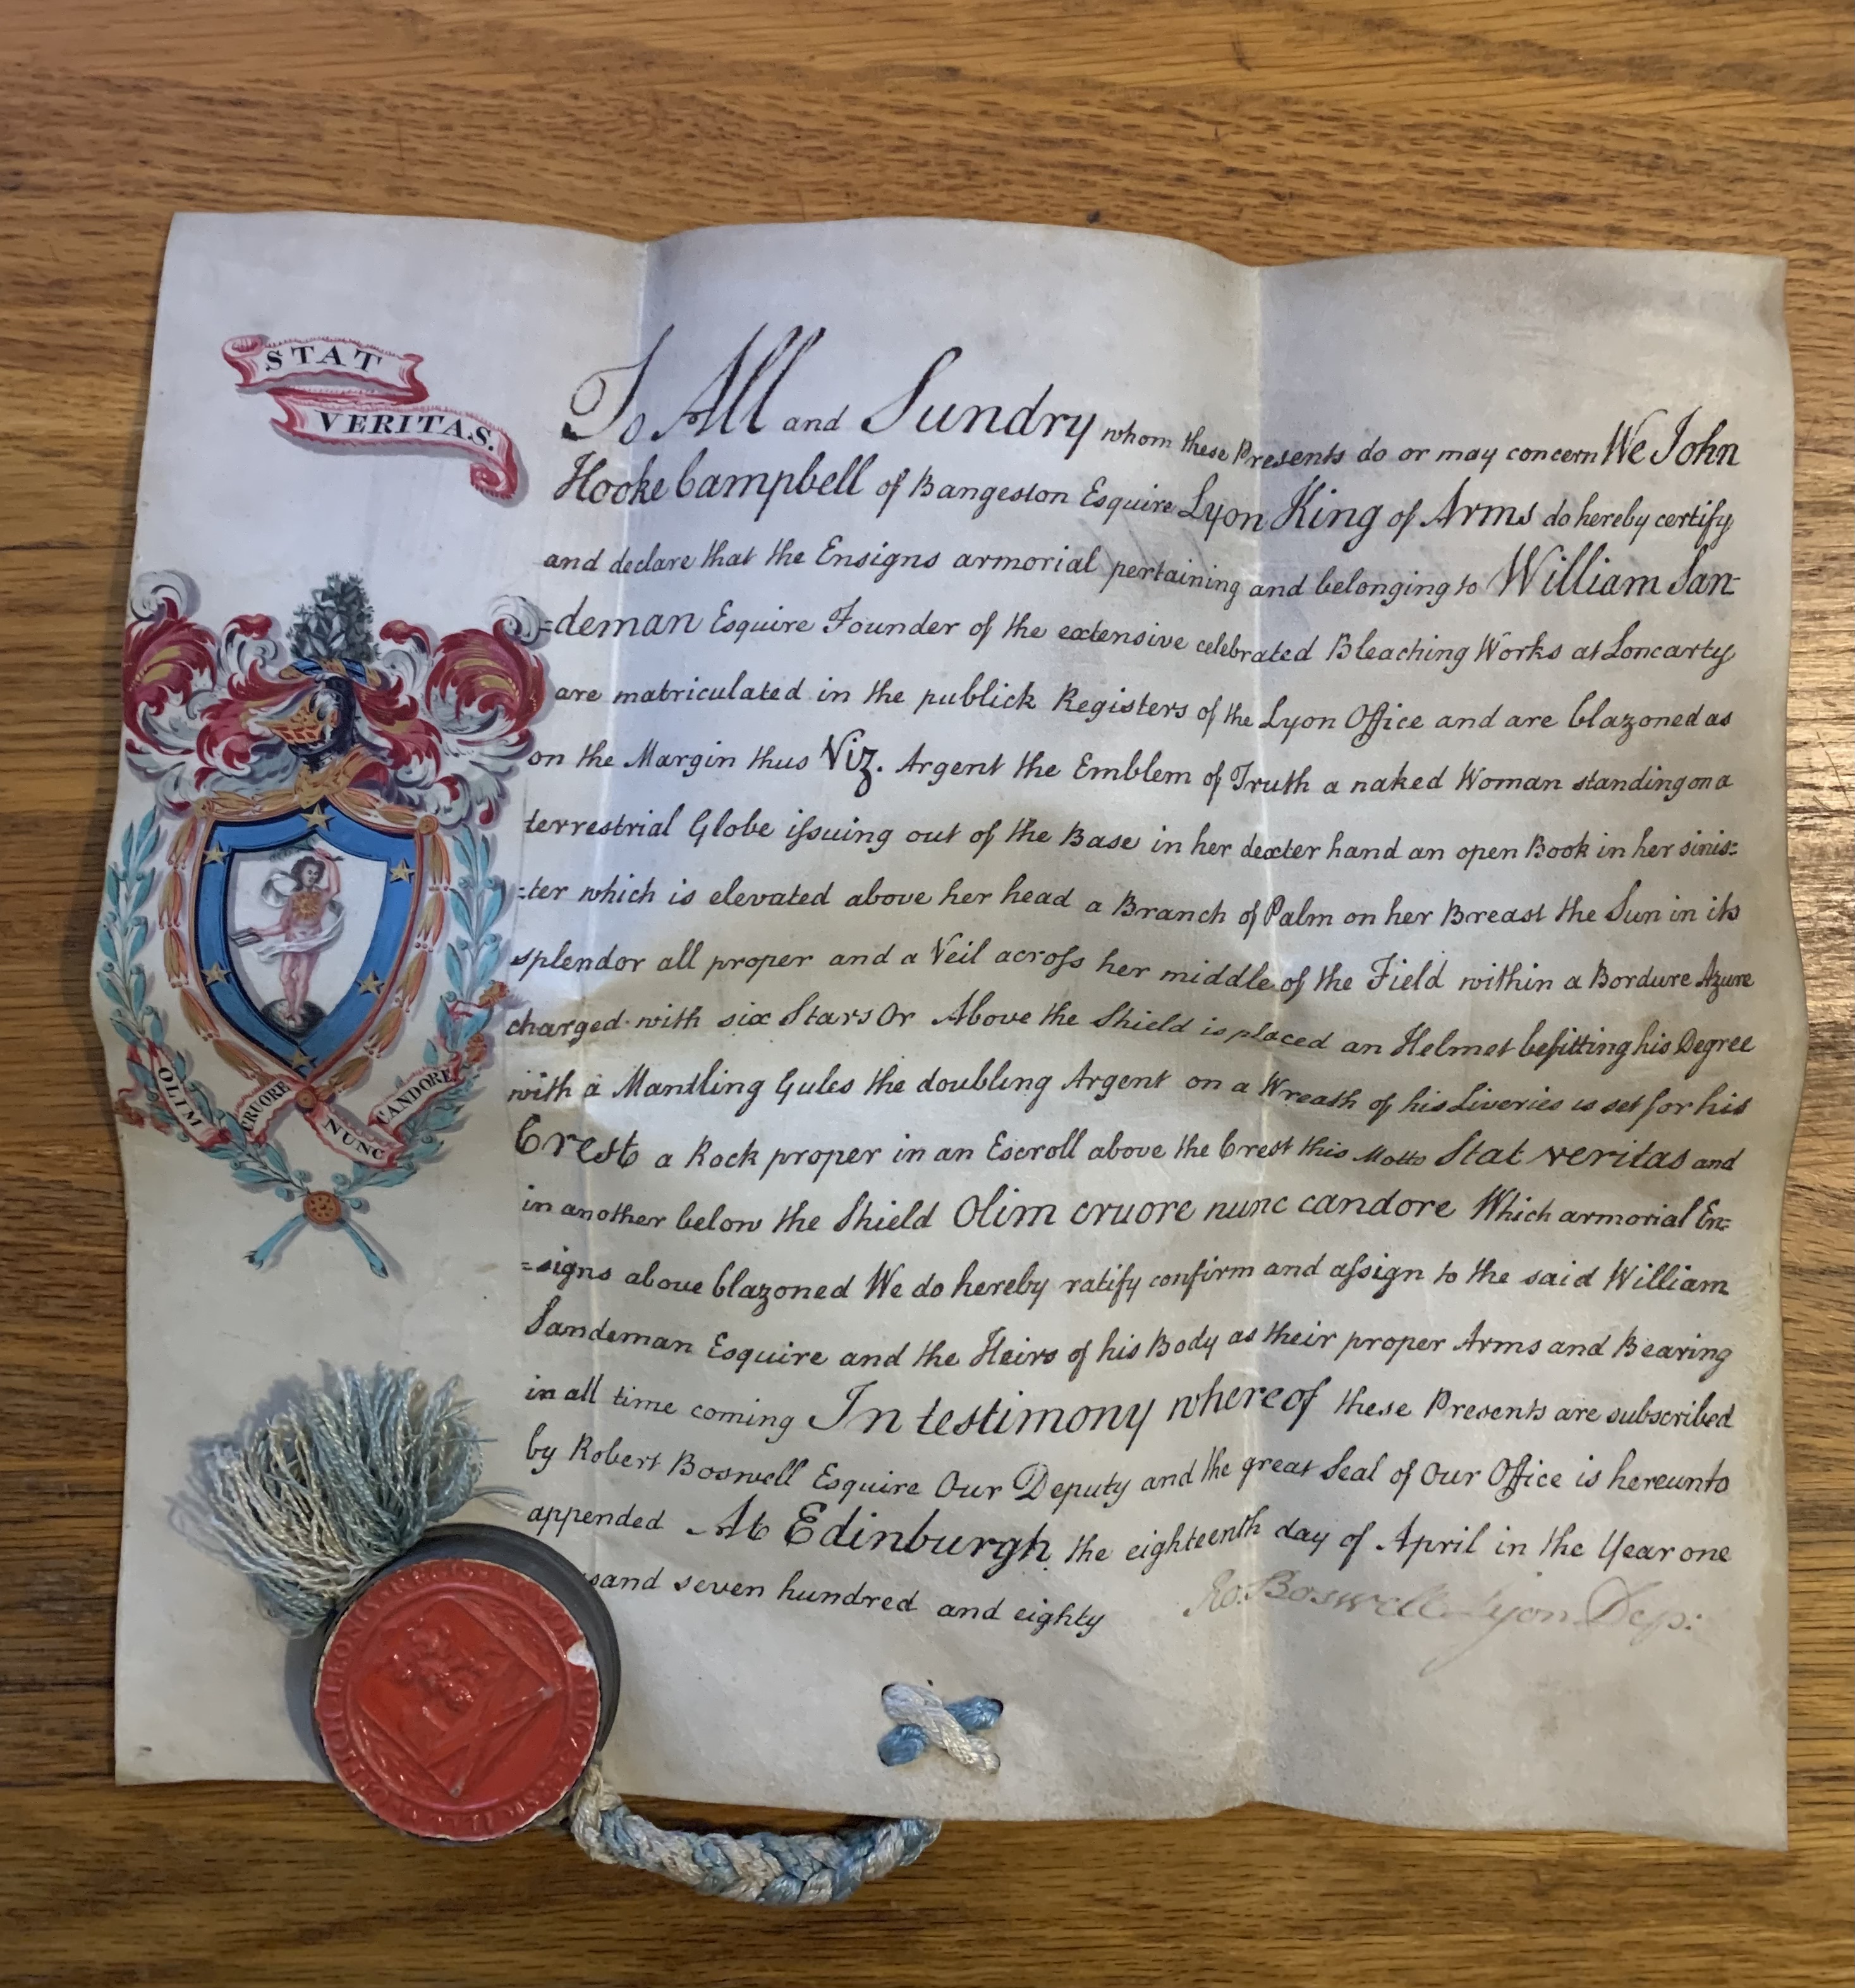 STAT
VERITAS.
To All and Sundry whom these Presents do or may concern We John
Hooke Campbell of Bangeston Esquire Lyon King of Arms do hereby certify
and declare that the Ensigns armorial pertaining and belonging to William San-
=deman Esquire Founder of the extensive celebrated Bleaching Works at Loncarty
are matriculated in the publick Registers of the Lyon Office and are blazoned as
on the Margin thus Viz. Argent the Emblem of Truth a naked Woman standing on a
terrestrial Globe ifsuing out of the Base in her dexter hand an open Book in her sinis=
=ter which is elevated above her head a Branch of Palm on her Breast the Sun in its
splendor all proper and a Veil acrofs her middle of the Field within a Bordure Azure
charged with six Stars Or Above the Shield is placed an Helmet befitting his Degree
with a Mantling Gules the doubling Argent on a Wreath of his Liveries is set for his
Crest a Rock proper in an Escroll above the Crest this Motto Stat veritas and
in another below the Shield Olim cruore nunc candore Which armorial En=
=signs above blazoned We do hereby ratify confirm and afsign to the said William
Sandeman Esquire and the Heirs of his Body as their proper Arms and Bearing
in all time coming In testimony whereof these Presents are subscribed
by Robert Boswell Esquire Our Deputy and the great Seal of Our Office is hereunto
appended At Edinburgh the eighteenth day of April in the Year one
sand seven hundred and eighty
Ro. Boswell Lyon Dep:
OLIM CRUORE NUNC CANDORE